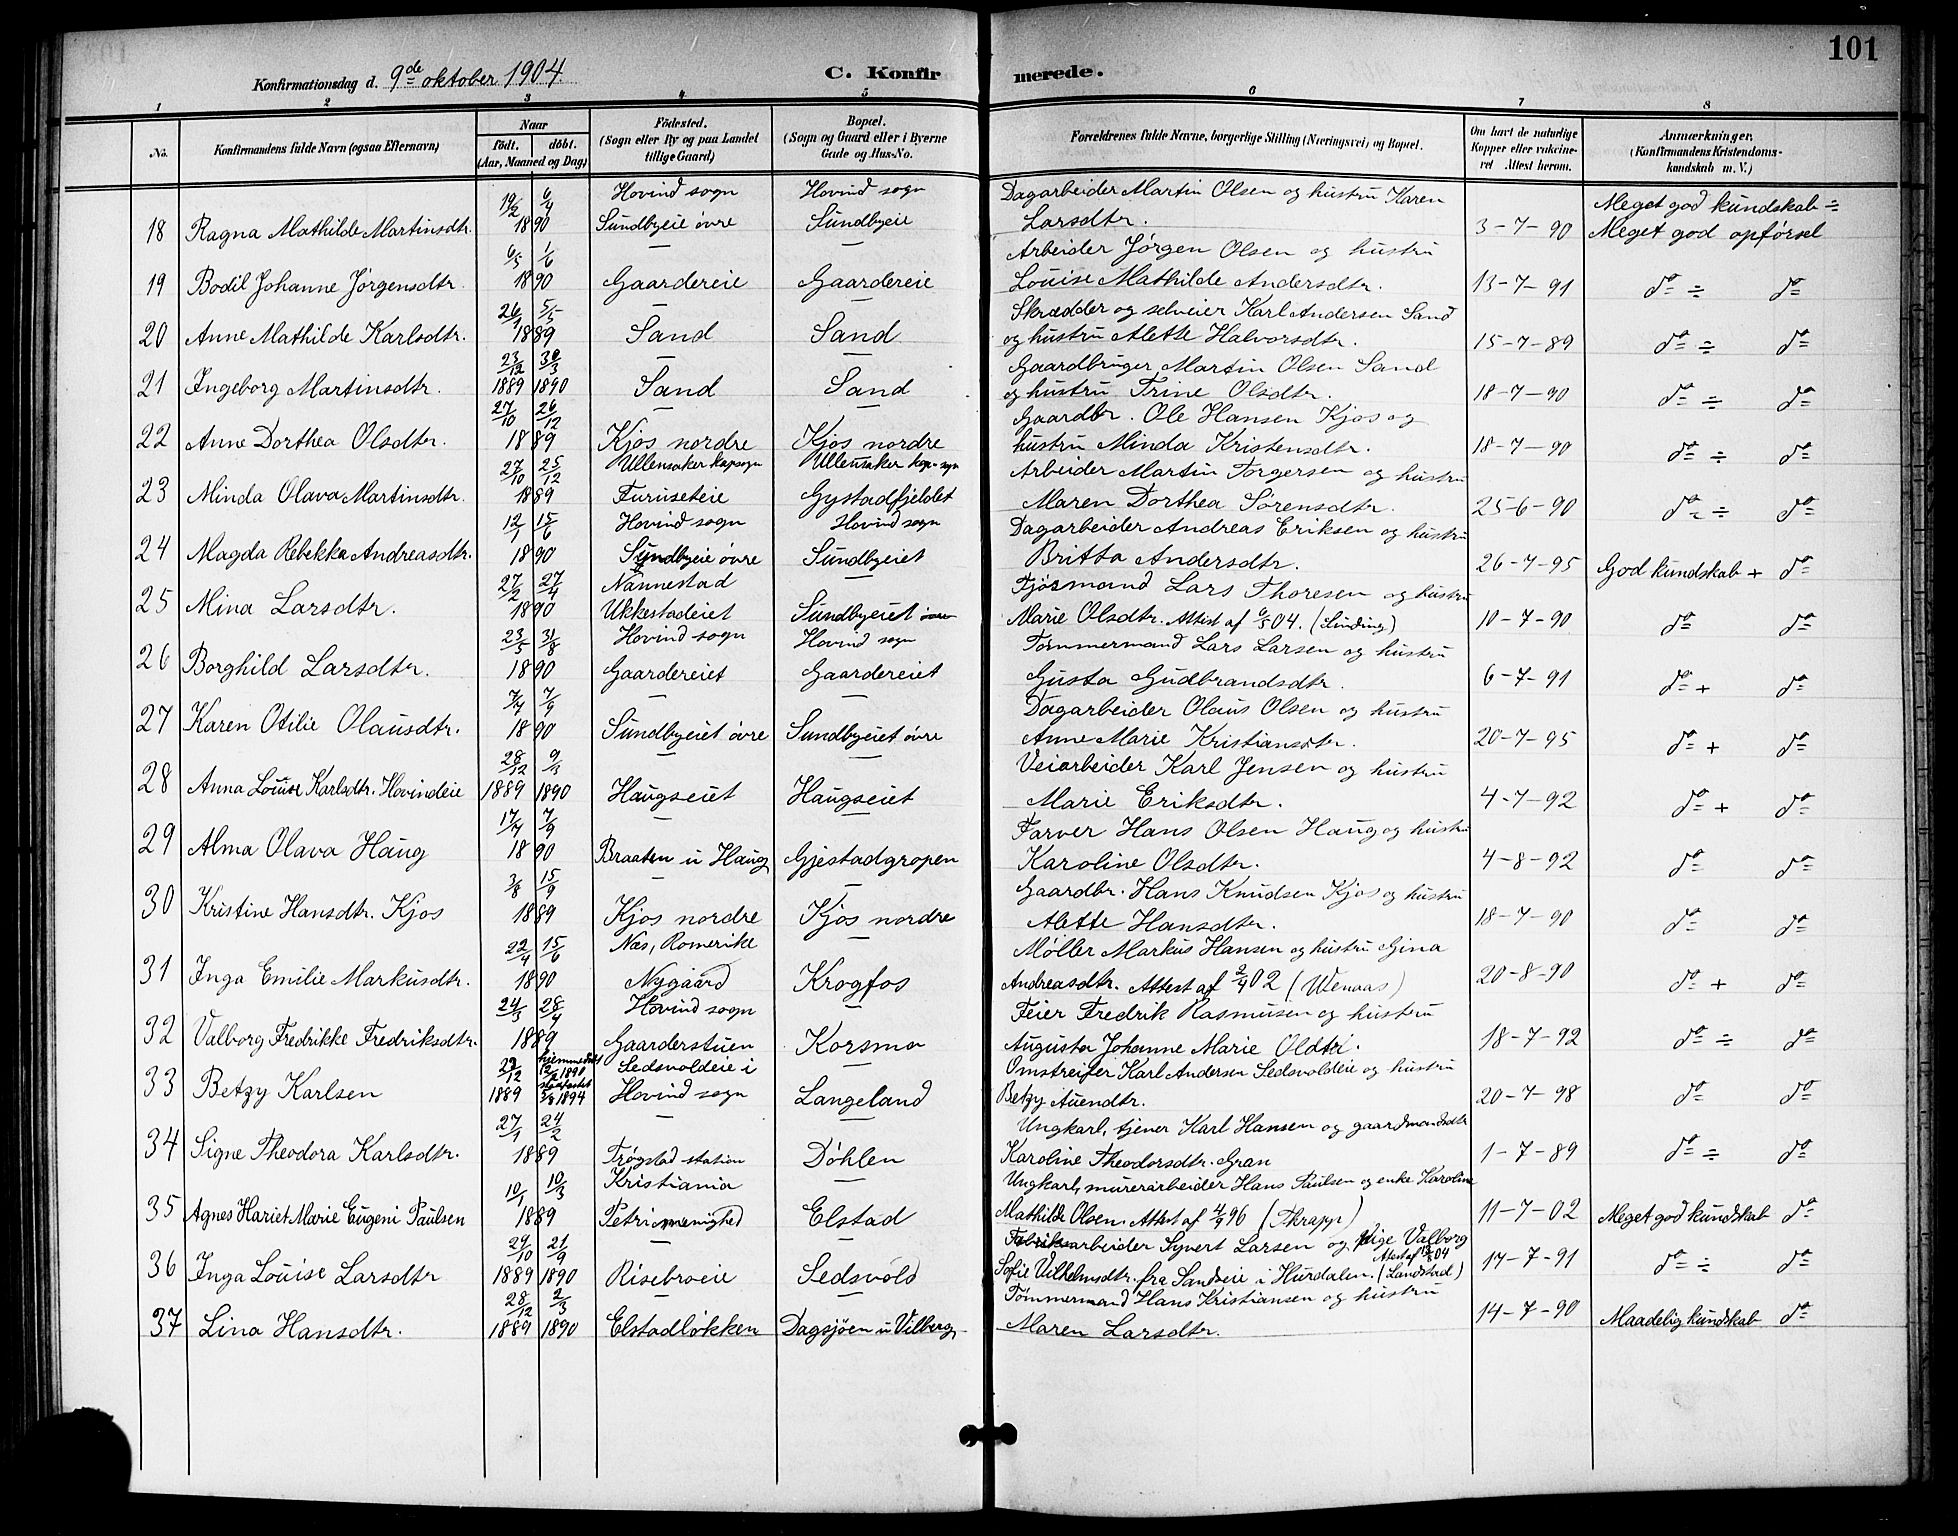 101
Konfirmationsdag d. 9de oktober 1904. C. Konfirmerede.
1 2 3 4 5 6 7 8
No. Konfirmandens fulde Navn (ogsaa Efternavn) Naar født. døbt. (Aar, Maaned og Dag) Födested. (Sogn eller By og paa Landet tillige Gaard) Bopæl. (Sogn og Gaard eller i Byerne Gade og Hus-No. Forældrenes fulde Navne, borgerlige Stilling (Næringsvei) og Bopæl. Om havt de naturlige Kopper eller vakcineret Attest herom. Anmærkninger. (Konfirmandens Kristendomskundskab m. V.)
19/2 6/4 Hovind sogn Hovind sogn Dagarbeider Martin Olsen og hustru Karen Meget god kundskab ÷
18 Ragna Mathilde Martinsdtr. 1890 Sundbyeie övre Sundbyeie Larsdtr. 3-7-90 Meget god opförsel
6/5 1/6 — — Arbeider Jørgen Olsen og hustru
19 Bodil Johanne Jørgensdtr. 1890 Gaardereie Gaardereie Louise Mathilde Andersdtr. 13-7-91 do ÷ do
26/1 5/5 — — Skrædder og selveier Karl Andersen Sand
20 Anne Mathilde Karlsdtr. 1889 Sand Sand og hustru Alette Halvorsdtr. 15-7-89 do ÷ do
23/12 30/3 — — Gaardbruger Martin Olsen Sand
21 Ingeborg Martinsdtr. 1889 1890 Sand Sand og hustru Trine Olsdtr. 18-7-90 do ÷ do
27/10 26/12 — — Gaardbr. Ole Hansen Kjos og
22 Anne Dorthea Olsdtr. 1889 Kjos nordre Kjos nordre hustru Minda Kristensdtr. 18-7-90 do ÷ do
27/10 25/12 Ullensaker kapsogn Ullensaker kap.sgn Arbeider Martin Torgersen og hustru
23 Minda Olava Martinsdtr. 1889 Furuseteie Gystadfjeldet Maren Dorthea Sörensdtr. 25-6-90 do ÷ do
12/1 15/6 Hovind sogn Hovind sogn Dagarbeider Andreas Eriksen og hustru
24 Magda Rebekka Andreasdtr. 1890 Sundbyeie övre Sundbyeiet Britta Andersdtr. 26-7-95 God kundskab + do
27/2 27/4 Nannestad — Fjösmand Lars Thoresen og hustru
25 Mina Larsdtr. 1890 Ukkestadeiet Sundbyeiet övre Marie Olsdtr. Attest af 6/5 04. (Linding) 10-7-90 do do
23/5 31/8 Hovind sogn Hovind sogn Tømmermand Lars Larsen og hustru
26 Borghild Larsdtr. 1890 Gaardereiet Gaardereiet Gusta Gudbrandsdtr. 6-7-91 do + do
7/7 7/9 — — Dagarbeider Olaus Olsen og hustru
27 Karen Otilie Olausdtr. 1890 Sundbyeiet övre Sundbyeiet övre Anne Marie Kristiansdtr. 20-7-95 do + do
28/12 9/3 — — Veiarbeider Karl Jensen og hustru
28 Anna Louise Karlsdtr. Hovindeie 1889 1890 Haugseiet Haugseiet Marie Eriksdtr. 4-7-92 do + do
17/7 7/9 — — Farver Hans Olsen Haug og hustru
29 Alma Olava Haug 1890 Braaten u Haug Gjestadgropen Karoline Olsdtr. 4-8-92 do do
3/8 15/9 — — Gaardbr. Hans Knudsen Kjos og hustru
30 Kristine Hansdtr. Kjos 1889 Kjos nordre Kjos nordre Alette Hansdtr. 18-7-90 do do
22/4 15/6 Næs, Romerike — Møller Markus Hansen og hustru Gina
31 Inga Emilie Markusdtr. 1890 Nygaard Krogfos Andreasdtr. Attest af 2/4 02 (Wenaas) 20-8-90 do + do
24/3 28/4 Hovind sogn — Feier Fredrik Rasmusen og hustru
32 Valborg Fredrikke Fredriksdtr. 1889 Gaarderstuen Korsmo Augusta Johanne Marie 18-7-92 do ÷ do
hjemmedøbt 12/2 1890 Sedsvoldeie i — Omstreifer Karl Andersen Sedsvoldeie og hustru
33 Betzy Karlsen 1889 stadfæstet 3/8 1894 Hovind sogn Langeland Betzy Auendtr. 20-7-98 do do
27/1 24/2 — — Ungkarl, tjener Karl Hansen og gaardmandsdtr
34 Signe Theodora Karlsdtr. 1889 Trögstad station Döhlen Karoline Theodorsdtr. Gran 1-7-89 do ÷ do
10/1 10/3 Kristiania — Ungkarl, murerarbeider Hans Paulsen og enke Karoline
35 Agnes Hariet Marie Eugeni Paulsen 1889 Petri menighed Elstad Mathilde Olsen. Attest af 4/9 96 (Skrapp) 11-7-02 Meget god kundskab do
29/10 21/9 — — Fabriksarbeider Syvert Larsen og pige Valborg
36 Inga Louise Larsdtr 1889 1890 Risebroeie Sedsvold Sofie Vilhelmsdtr. fra Sandseie i Hurdalen. (Landstad) 17-7-91 do ÷ do
28/12 2/3 — — Tømmermand Hans Kristiansen og hustru
37 Lina Hansdtr. 1889 1890 Elstadløkken Dagsjöen u Vilberg Maren Larsdtr. 14-7-90 Maadelig kundskab do